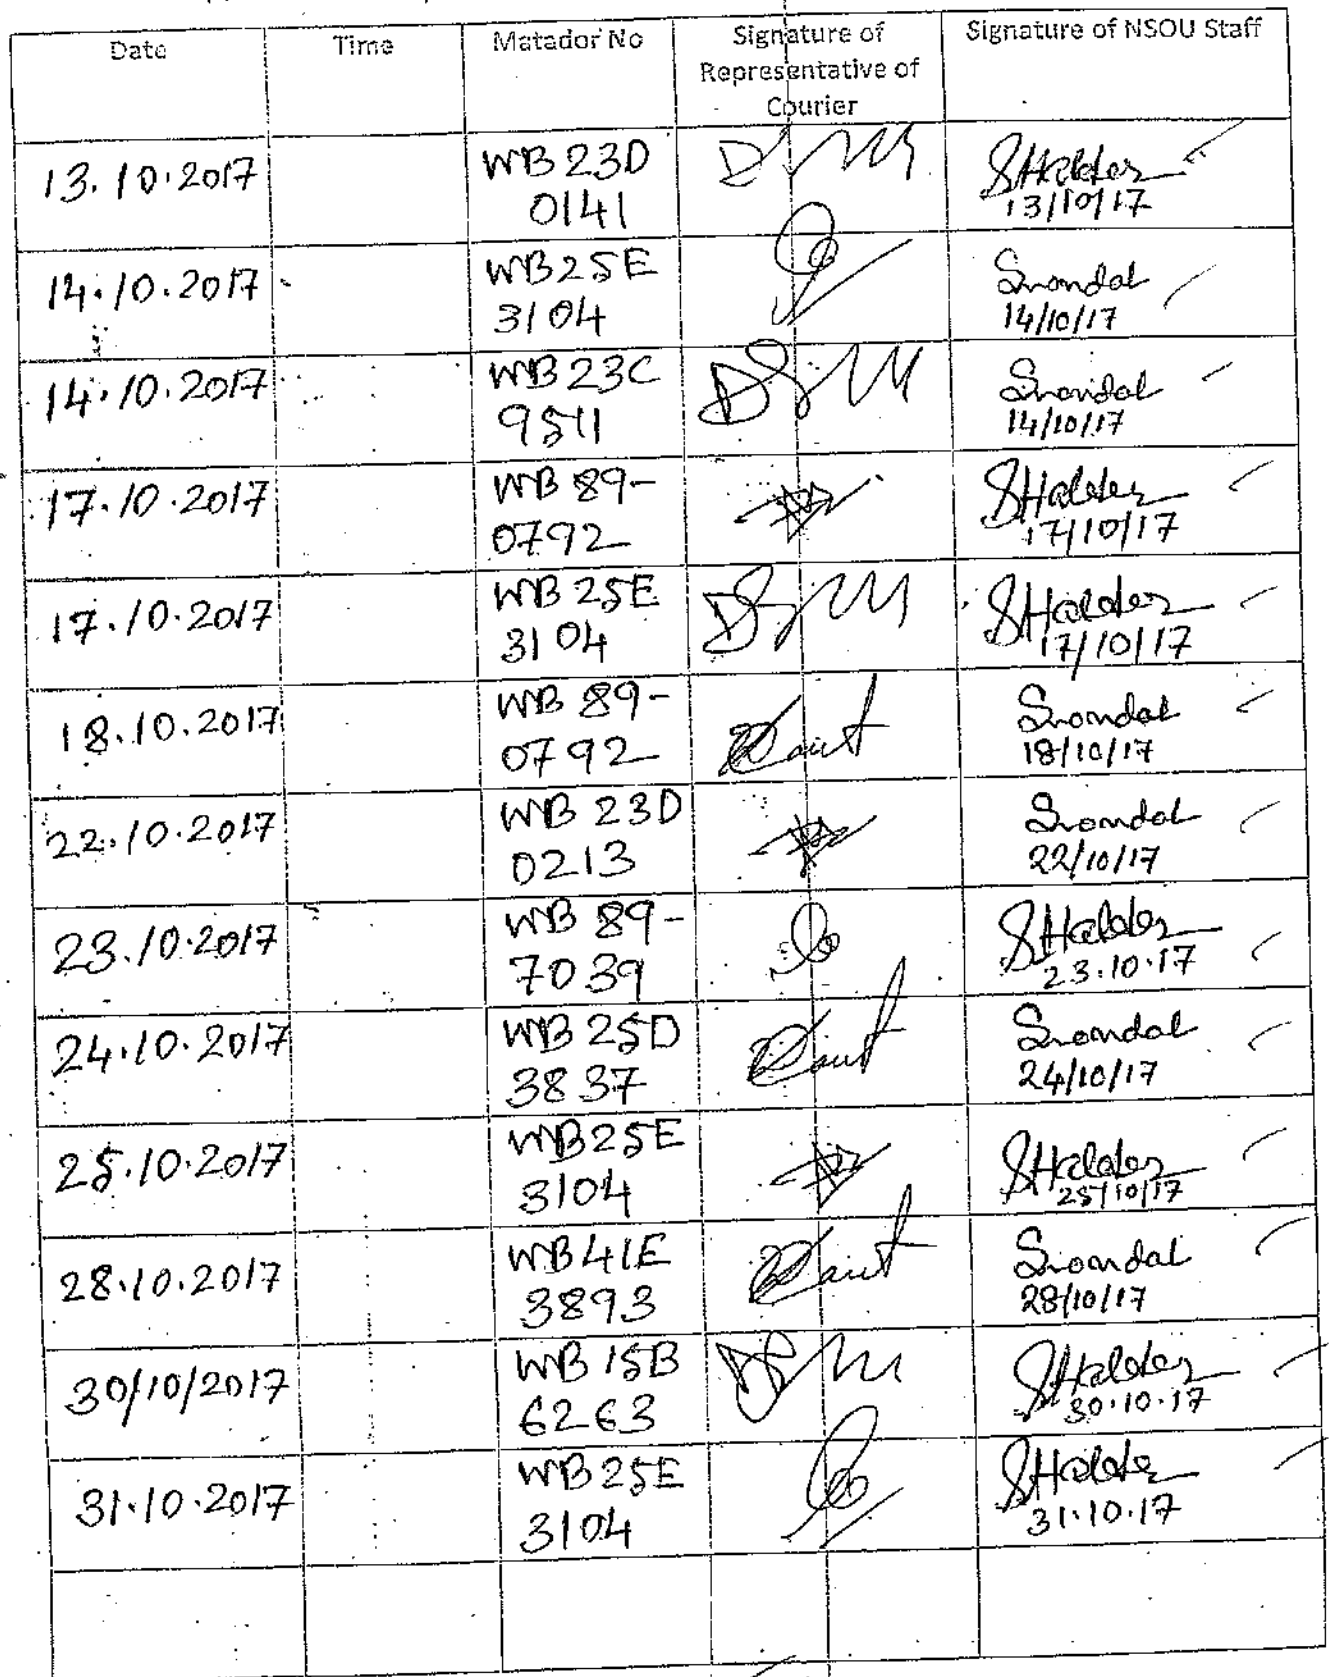 Date Time Matador No Signature of Representative of Courier Signature of NSOU Staff
13.10.2017 WB 23D 0141 SHalder 13/10/17
14.10.2017 WB25E 3104 Smondal 14/10/17
14.10.2017 WB 23C 9511 Smondal 14/10/17
17.10.2017 WB 89- 0792 SHalder 17/10/17
17.10.2017 WB 25E 3104 SHalder 17/10/17
18.10.2017 WB 89- 0792 Smondal 18/10/17
22.10.2017 WB 23D 0213 Smondal 22/10/17
23.10.2017 WB 89- 7039 SHalder 23.10.17
24.10.2017 WB 25D 3837 Smondal 24/10/17
25.10.2017 WB25E 3104 SHalder 25/10/17
28.10.2017 WB41E 3893 Smondal 28/10/17
30/10/2017 WB 15B 6263 SHalder 30.10.17
31.10.2017 WB 25E 3104 SHalder 31.10.17